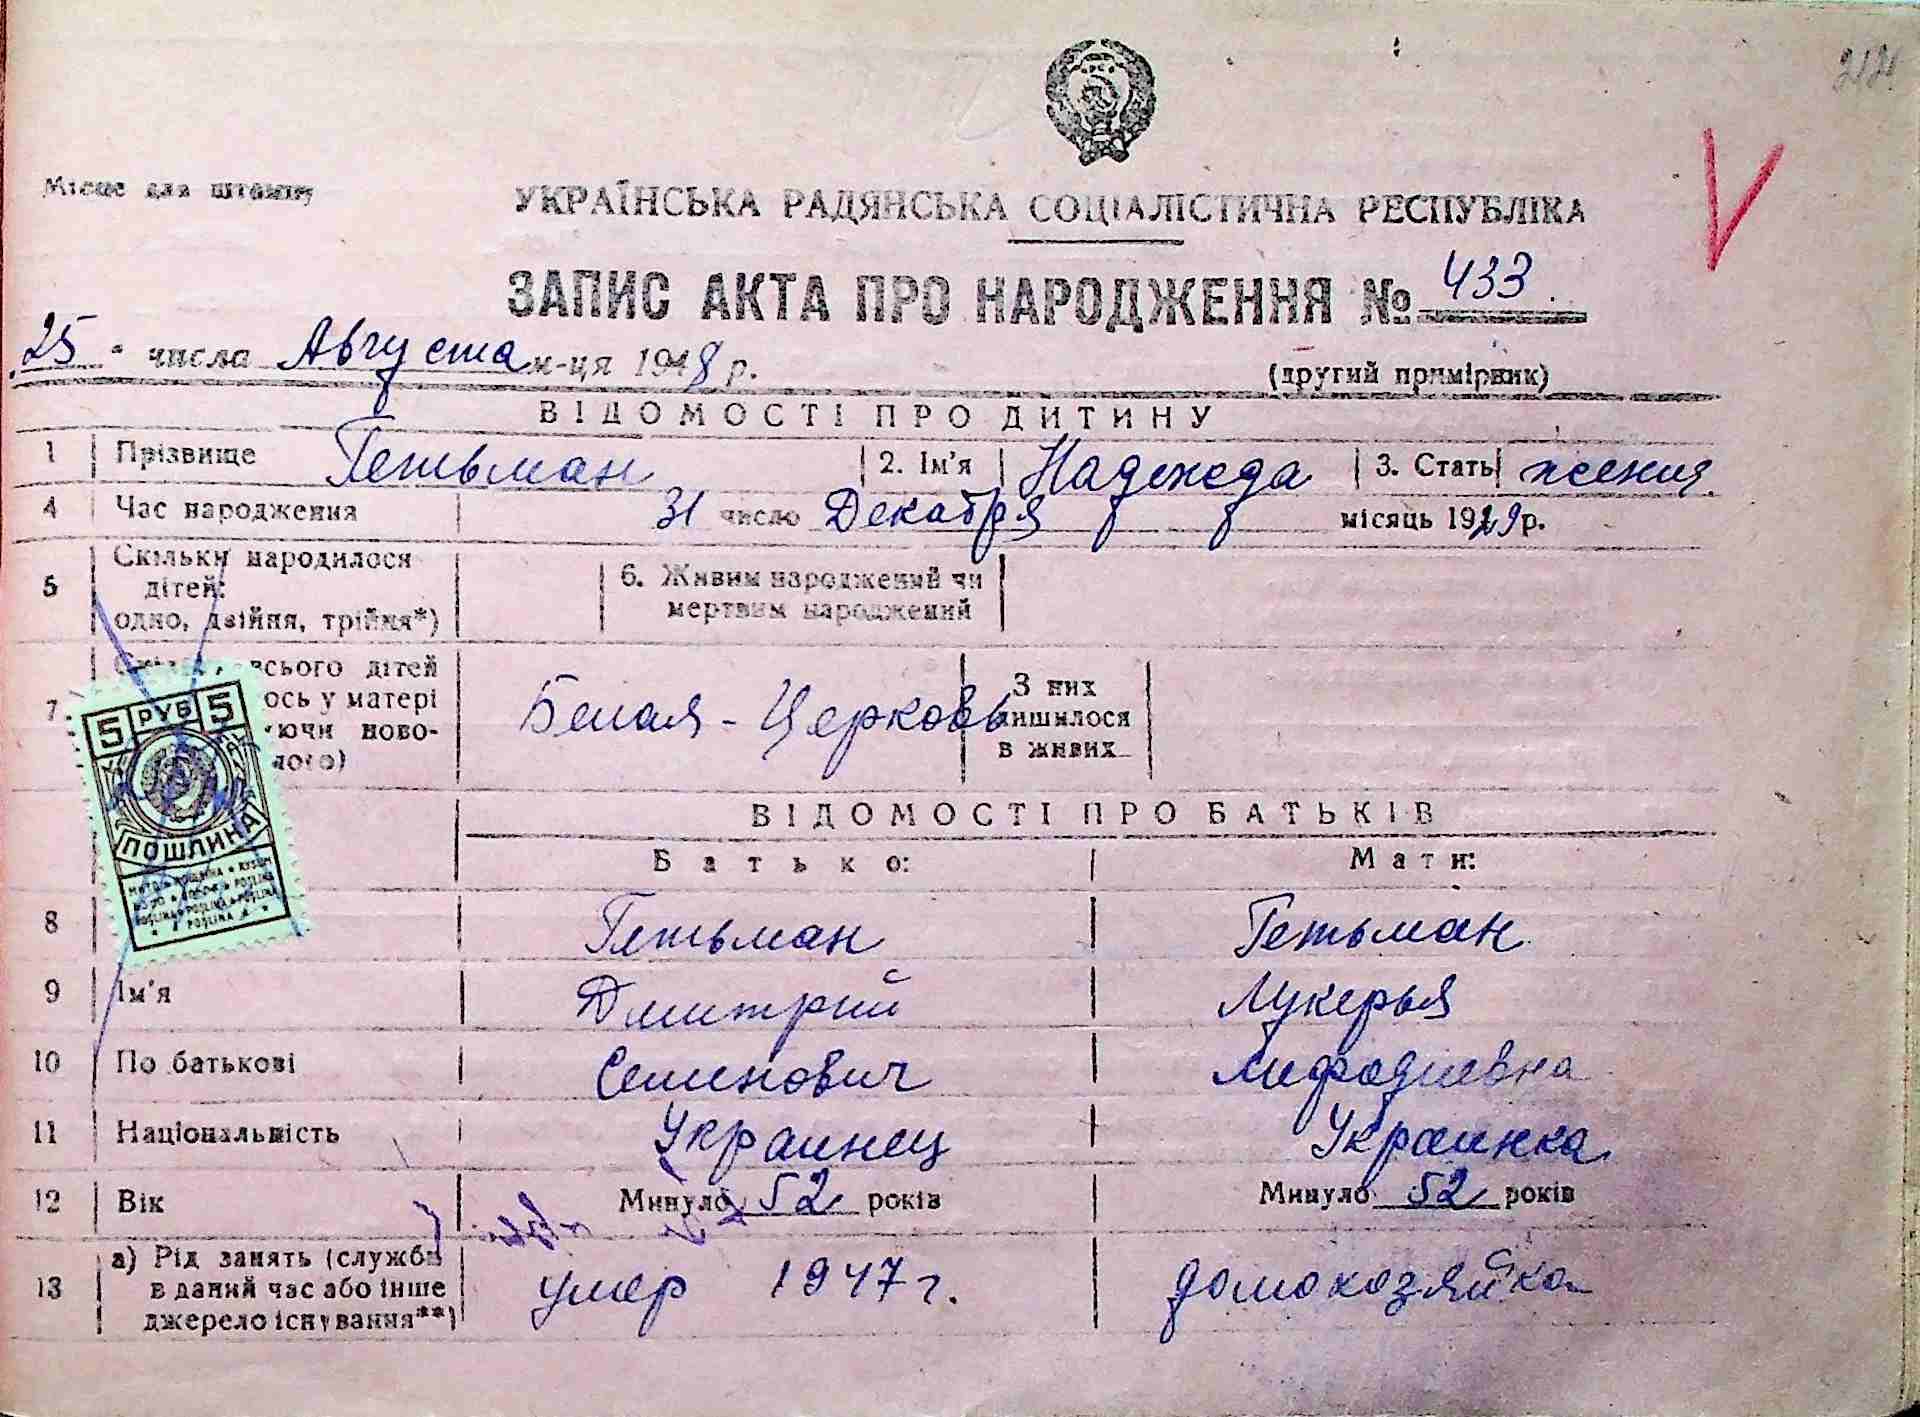 Місце для штампу
УКРАЇНСЬКА РАДЯНСЬКА СОЦІАЛІСТИЧНА РЕСПУБЛІКА
ЗАПИС АКТА ПРО НАРОДЖЕННЯ № 433
25 числа Августа м-ця 1948 р.
(другий примірник)
ВІДОМОСТІ ПРО ДИТИНУ
1 Прізвище Гетьман 2. Ім'я Надежда 3. Стать женск.
4 Час народження 31 число Декабря місяць 1929 р.
5 Скільки народилося дітей: одно, двійня, трійня*)
6. Живим народжений чи мертвим народжений
7. всього дітей
ось у матері
ючи ново-
Белая-Церковь
З них лишилося в живих
5 РУБ 5
ПОШЛИНА
ВІДОМОСТІ ПРО БАТЬКІВ
Батько: Мати:
8 Гетьман Гетьман
9 Ім'я Дмитрий Лукерья
10 По батькові Семенович Мефодиевна
11 Національність Украинец Украинка
12 Вік Минуло 52 років Минуло 52 років
13 а) Рід занять (служби
в даний час або інше
джерело існування**)
умер 1947 г. домохозяйка